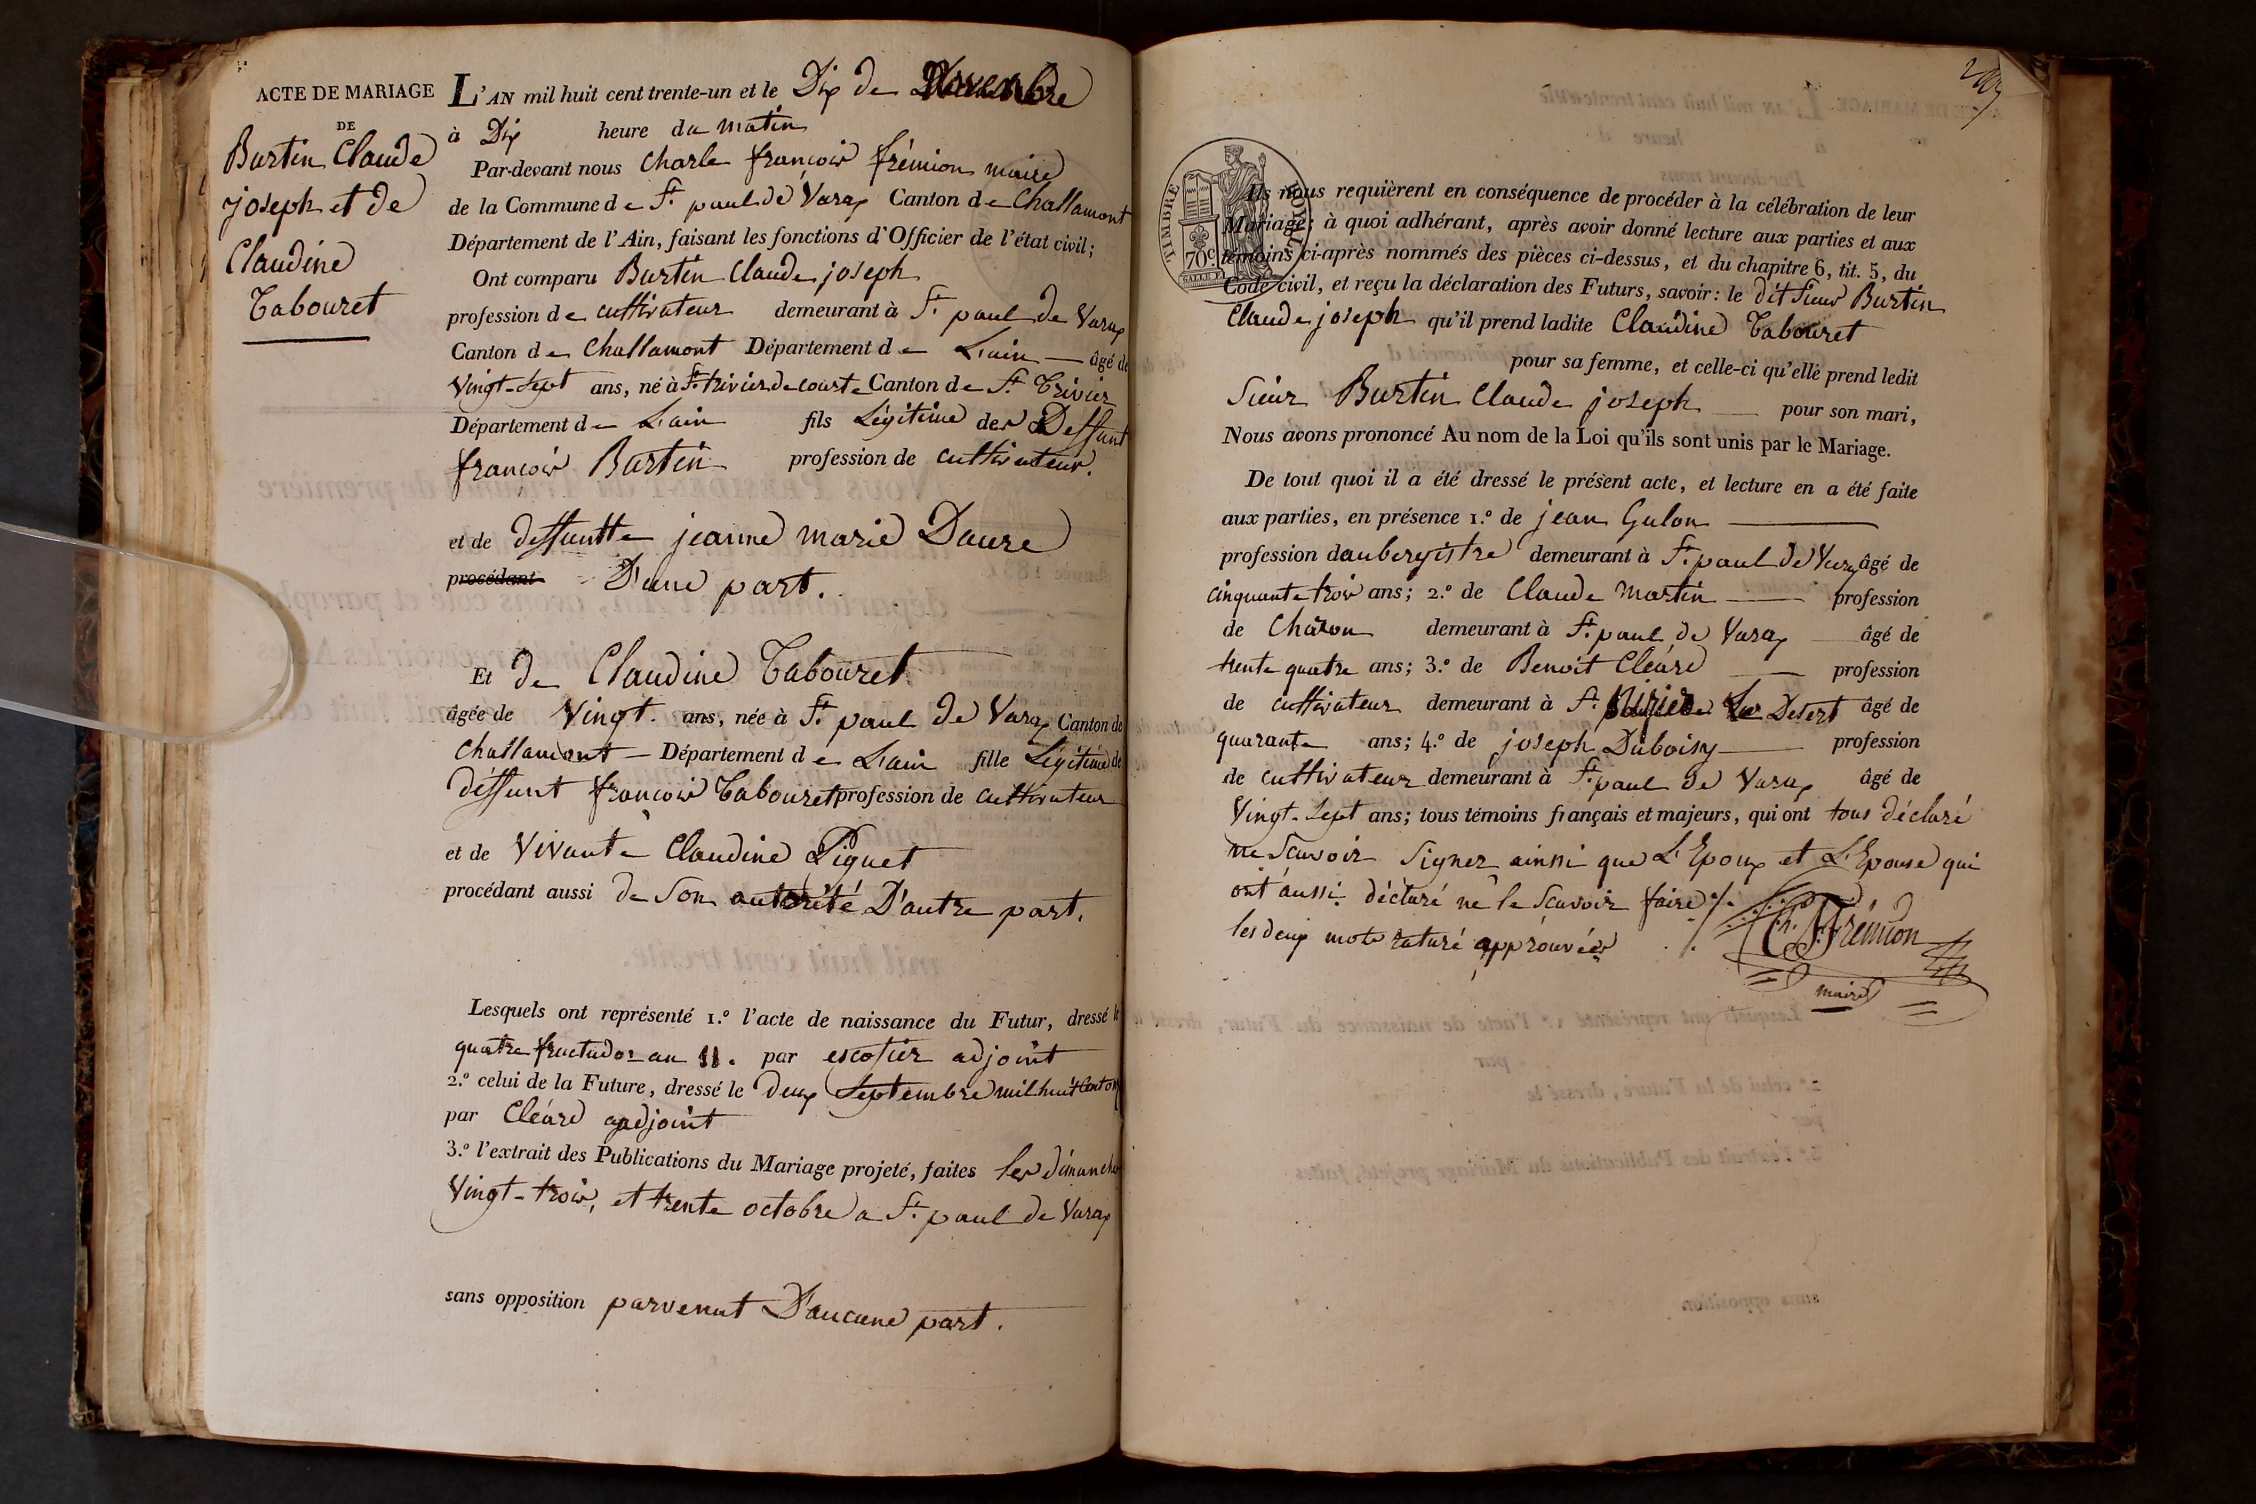 ACTE DE MARIAGE
DE
Burtin Claude
joseph et de
Claudine
Tabouret
L'AN mil huit cent trente-un et le Dix de Novembre
à Dix heure du matin
Par-devant nous Charle françois frémion maire
de la Commune de St. paul de Varax Canton de Challamont
Département de l'Ain, faisant les fonctions d'Officier de l'état civil;
Ont comparu Burtin Claude joseph
profession de cultivateur demeurant à St. paul de Varax
Canton de Challamont Département de L'ain âgé de
Vingt-Sept ans, né à St. trivier de courte Canton de St. Trivier
Département de L'ain fils Légitime des Deffunt
françois Burtin profession de cultivateur.
et de deffuntte jeanne marie Daure
procédant D'une part.
Et de Claudine Tabouret
âgée de Vingt ans, née à St. paul de Varax Canton de
Challamont Département de L'ain fille Légitime de
deffunt françois Tabouret profession de cultivateur
et de Vivante Claudine Piquet
procédant aussi de Son autorité D'autre part.
Lesquels ont représenté 1.º l'acte de naissance du Futur, dressé le
quatre fructudor an 11. par escofier adjoint
2.º celui de la Future, dressé le deux Septembre mil huit Cent onz
par Cléard adjoint
3.º l'extrait des Publications du Mariage projeté, faites les dimanches
Vingt-trois, et trente octobre a St. paul de Varax
sans opposition parvenut D'aucune part.
TIMBRE ROYAL
70c
Ils nous requièrent en conséquence de procéder à la célébration de leur
Mariage; à quoi adhérant, après avoir donné lecture aux parties et aux
témoins ci-après nommés des pièces ci-dessus, et du chapitre 6, tit. 5, du
Code civil, et reçu la déclaration des Futurs, savoir: le dit Sieur Burtin
Claude joseph qu'il prend ladite Claudine Tabouret
pour sa femme, et celle-ci qu'elle prend ledit
Sieur Burtin Claude joseph pour son mari,
Nous avons prononcé Au nom de la Loi qu'ils sont unis par le Mariage.
De tout quoi il a été dressé le présent acte, et lecture en a été faite
aux parties, en présence 1.º de jean Gulon
profession daubergistre demeurant à St. paul de Varax âgé de
cinquante trois ans; 2.º de Claude Martin profession
de Charon demeurant à St. paul de Varax âgé de
trente quatre ans; 3.º de Benoit Cléard profession
de cultivateur demeurant à St. Desert âgé de
quarante ans; 4.º de joseph Duboisy profession
de cultivateur demeurant à St. paul de Varax âgé de
Vingt-Sept ans; tous témoins français et majeurs, qui ont tous déclaré
ne Scavoir Signer ainsi que L'Epoux et L'Epouse qui
ont aussi déclaré ne le Scavoir faire
les deux mots raturé approuvées
Ch. F. Frémion
maire